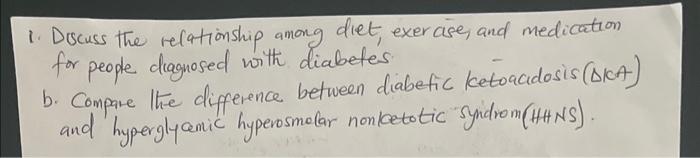 1. Discuss the relationship among diet, exercise, and medication
for people diagnosed with diabetes
b. Compare the difference between diabetic ketoacidosis (DKA)
and hyperglycemic hyperosmolar nonketotic syndrom (HHNS).